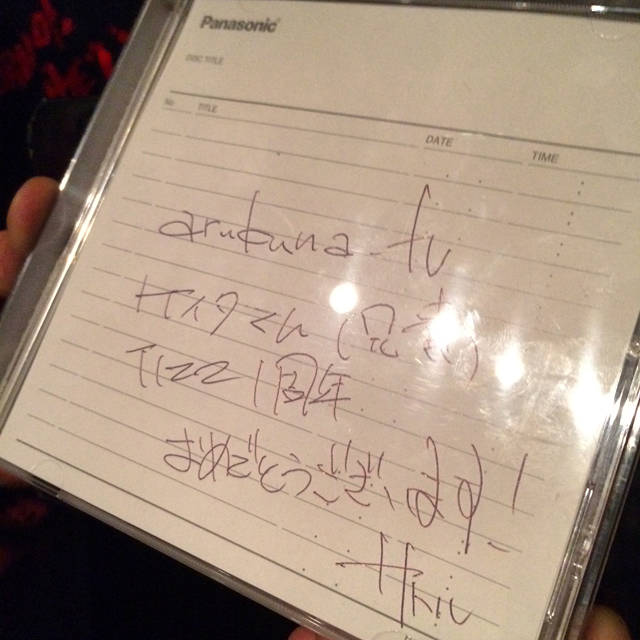 Panasonic
DISC TITLE
No. TITLE DATE TIME
arukuna fu
ケイタくん
1周年
おめでとうございます!